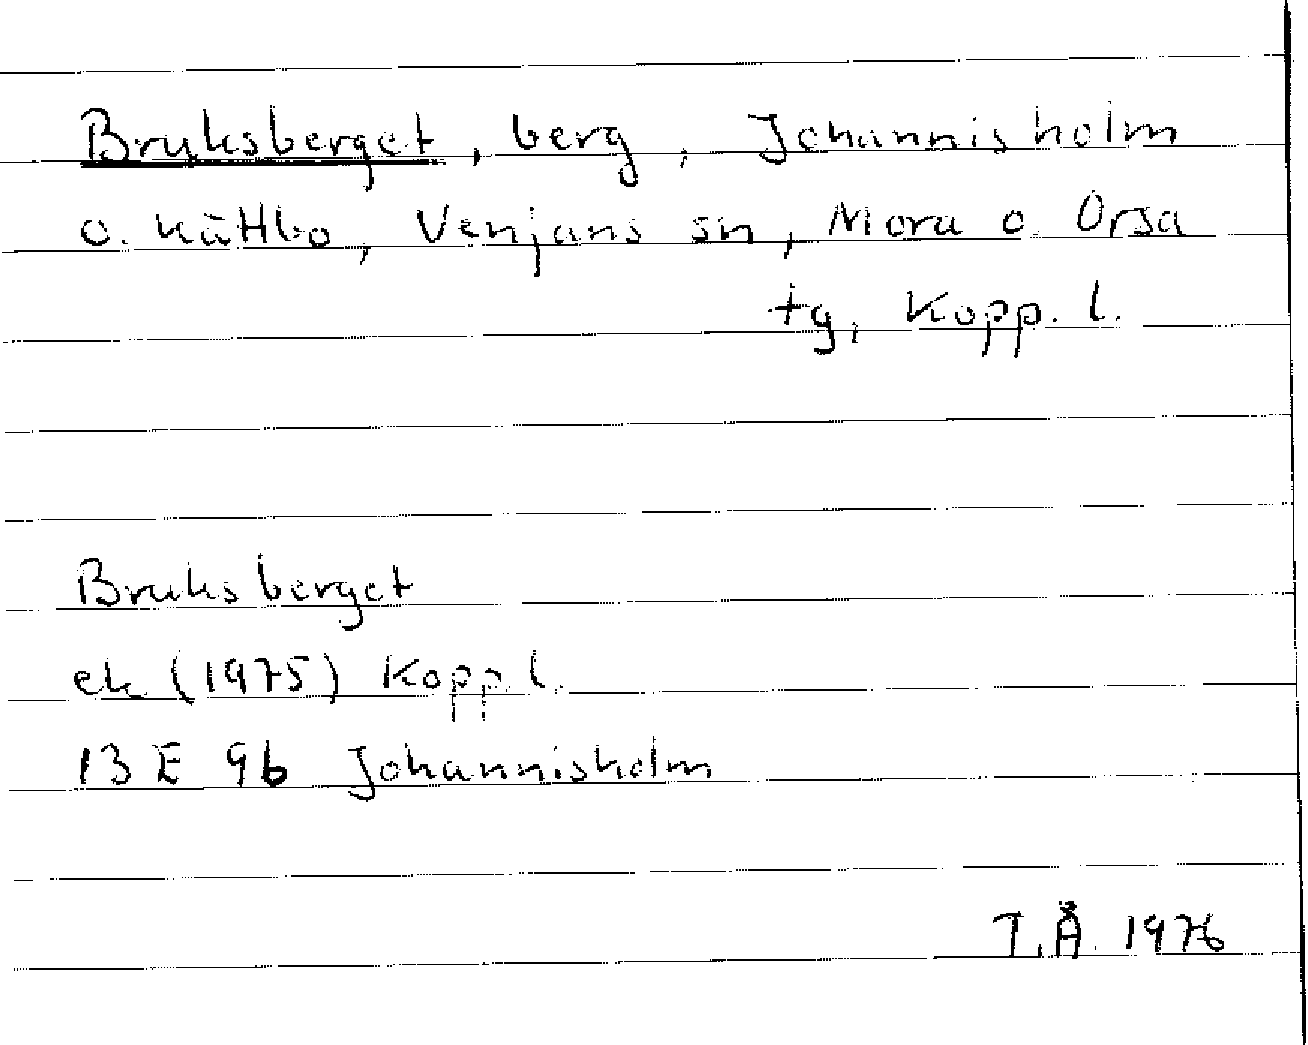 Bruksberget, berg, Johannisholm
o. Kättbo, Venjans sn, Mora o. Orsa
tg, Kopp. l.
Bruksberget
ek (1975) Kopp. l.
13 E 9b Johannisholm
T.Å. 1976